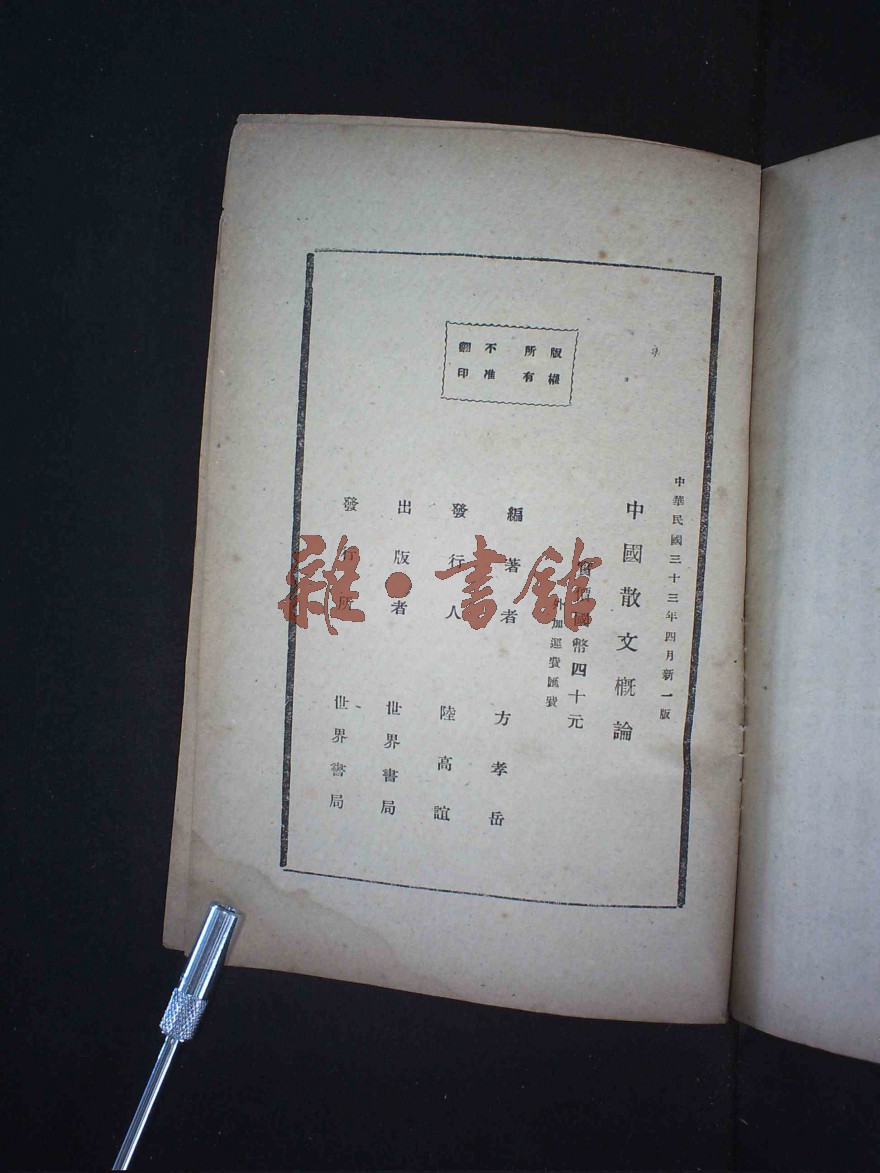 中華民國三十三年四月新一版
中國散文概論
實價國幣四十元
外加運費匯費
編著者 方孝岳
發行人 陸高誼
出版者 世界書局
發行所 世界書局
版權所有
不准翻印
雜·書館